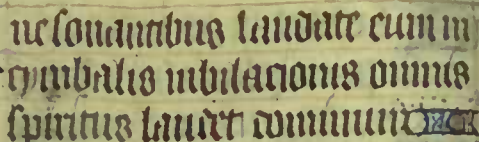 ne sonantibus laudate eum in
cymbalis iubilacionis omnis
spiritus laudet dominum